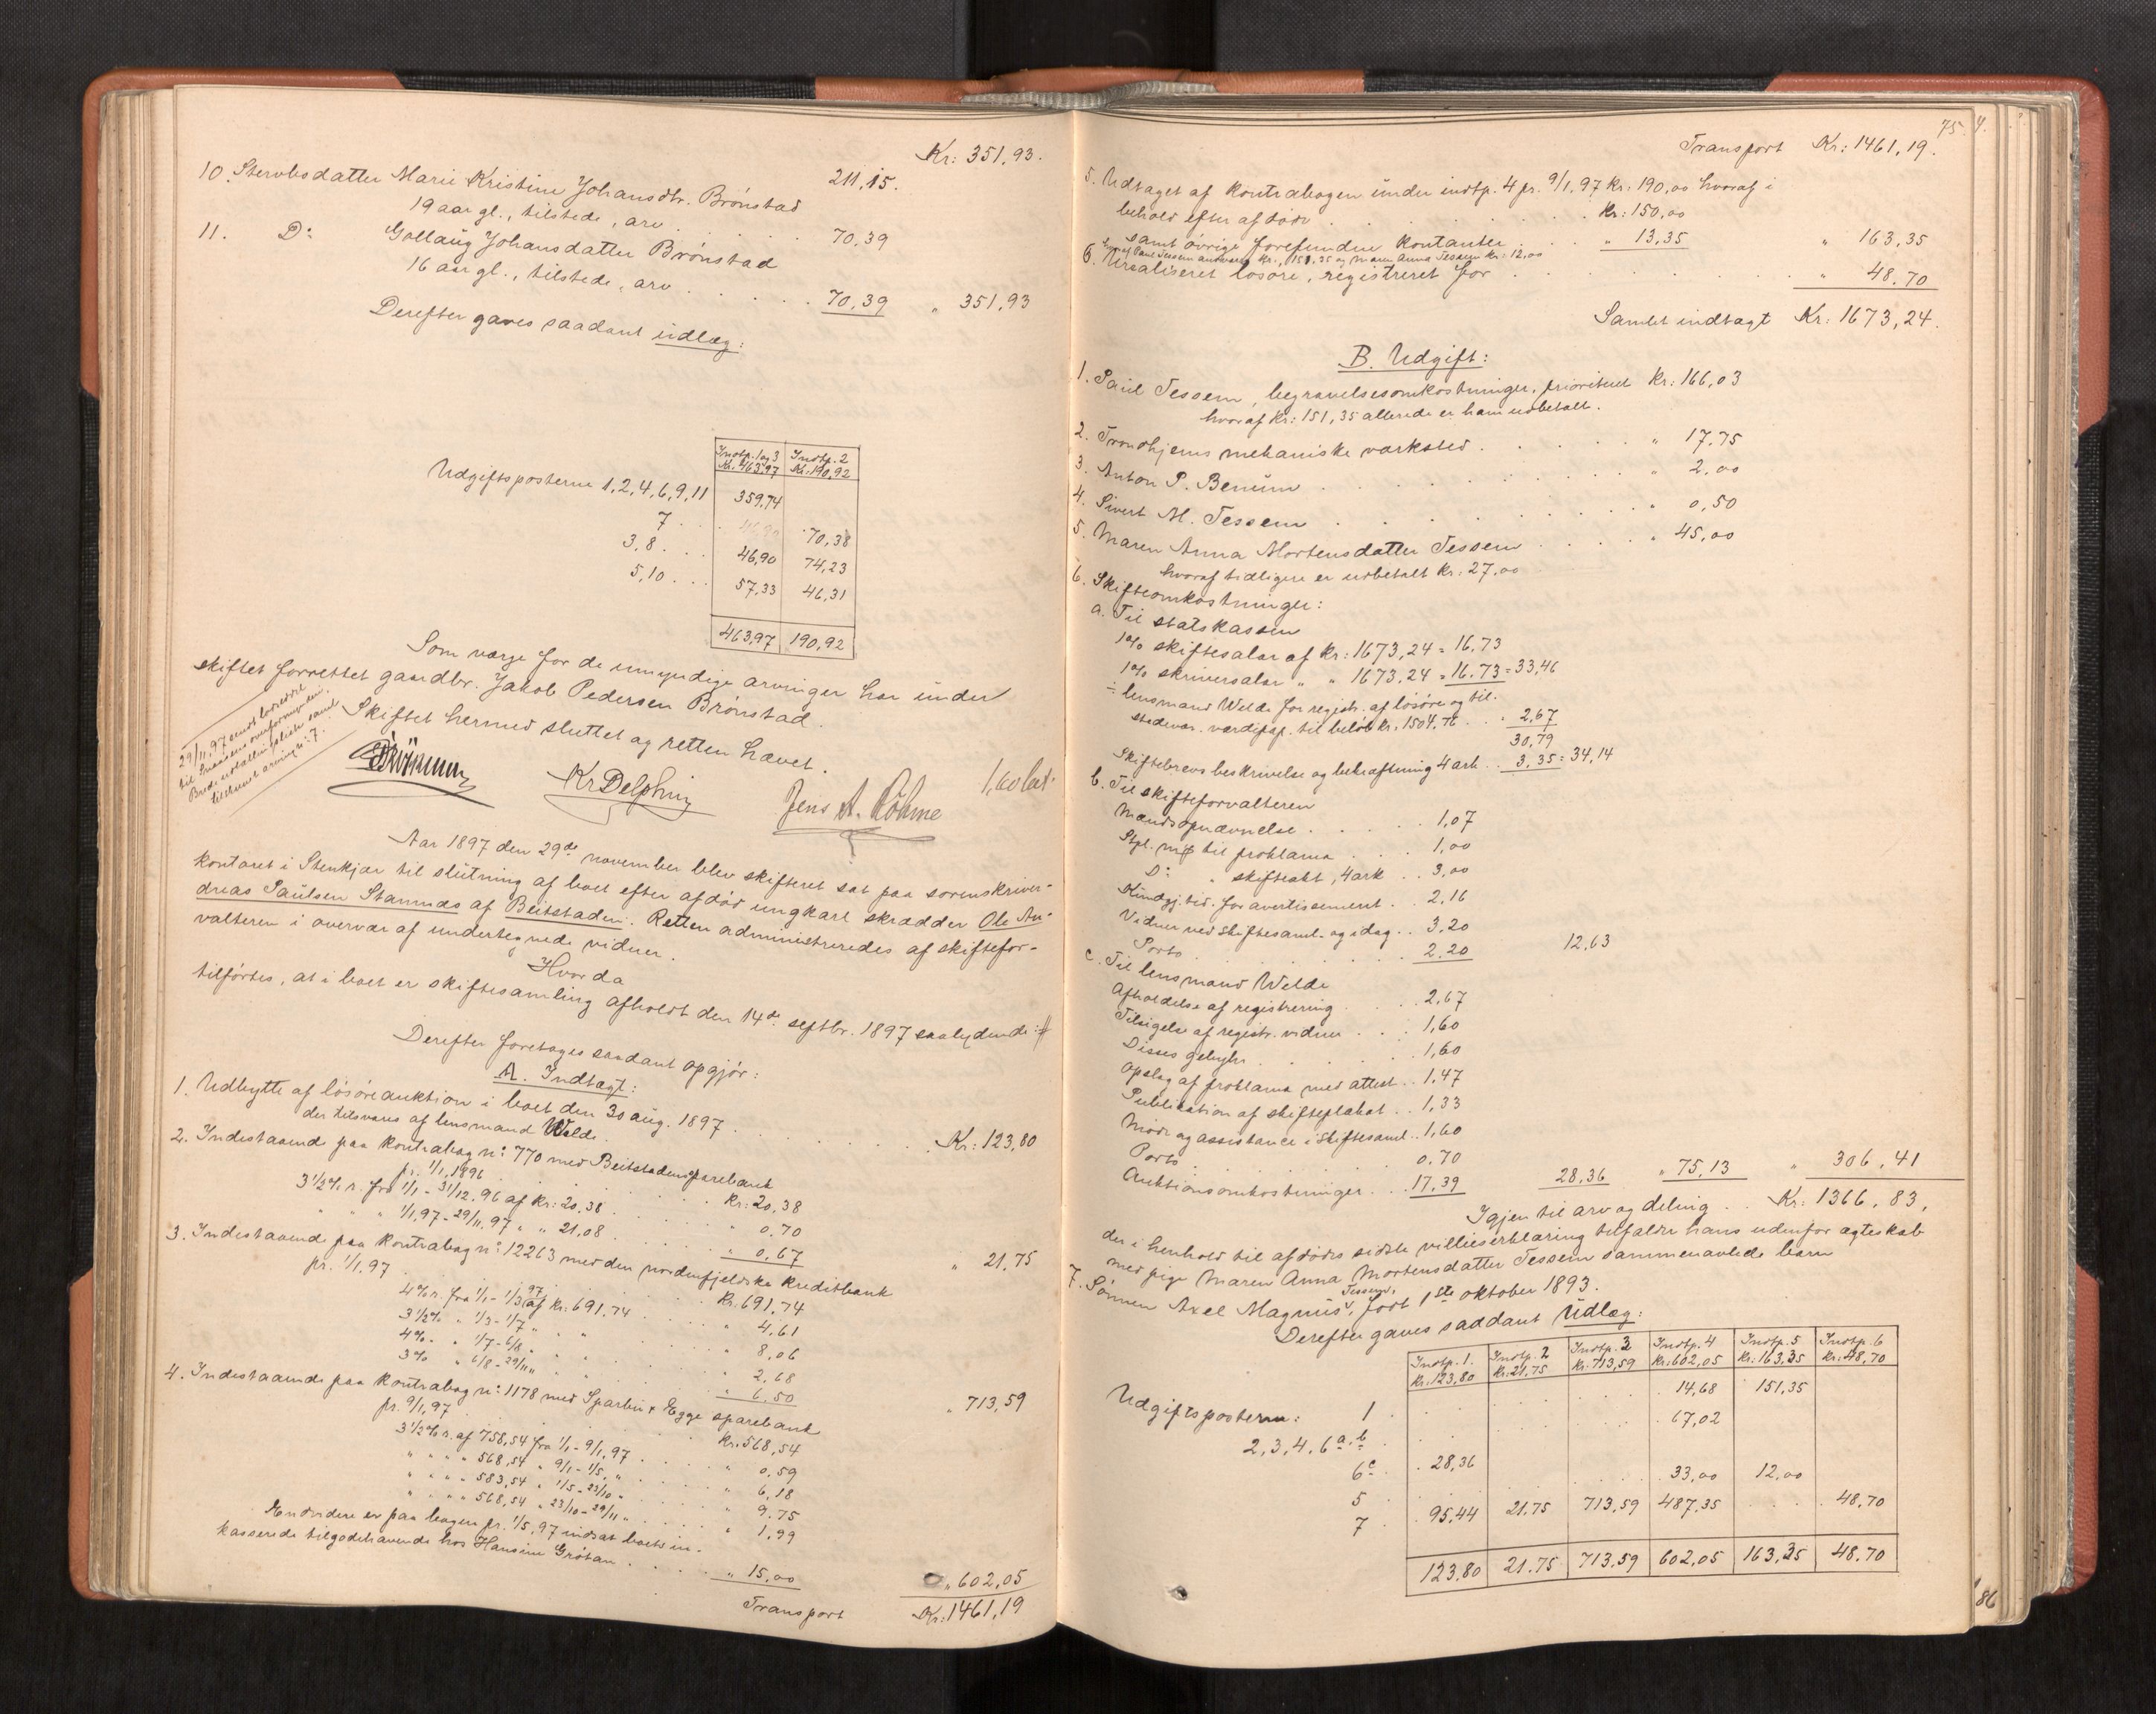 Kr: 351,93.
10. Stervbsdatter Marie Kristine Johansdtr. Brønstad 211,15.
19 aar gl., tilstede, arv . . . 70,39
11. Do Gollaug Johansdatter Brønstad
16 aar gl., tilstede, arv . . . . . 70,39 " 351,93
Derefter gaves saadant udlæg:
Indtp. 1 og 3 Indtp. 2
Kr: 463,97 Kr: 190,92
Udgiftsposterne 1, 2, 4, 6, 9, 11 359,74
7 . . . 70,38
3, 8 . . . 46,90 74,23
5, 10 . . . 57,33 46,31
463,97 190,92
Som værge for de umyndige arvinger har under
skiftet forrettet gaardbr. Jakob Pedersen Brønstad.
Skiftet hermed sluttet og retten hævet.
29/11 97 sendt
til
Kr Delphin Jens A. Röhme
Aar 1897 den 29de november blev skifteret sat paa sorenskriver-
kontoret i Stenkjær til slutning af boet efter afdød ungkarl skrædder Ole An-
dreas Paulsen Stamnes af Beitstaden. Retten administreredes af skiftefor-
valteren i overvær af undertegnede vidner.
Hvorda
tilførtes, at i boet er skiftesamling afholdt den 14de septbr. 1897 saalydende: #
Derefter foretages saadant opgjør:
A. Indtægt:
1. Udbytte af løsøreauktion i boet den 30 aug. 1897 . . . . Kr: 123,80
der tilsvares af lensmand Welde.
2. Indestaaende paa kontrabog no 770 med Beitstadens sparebank
pr. 1/1, 1896 . . . . Kr: 20,38
3 1/2 % r. fra 1/1 - 31/12, 96 af Kr: 20,38 . . . " 0,70
" " " 1/1, 97 - 29/11, 97 " " 21,08 . . . . " 0,67 " 21,75
3. Indestaaende paa kontrabog no 12263 med den nordenfjeldske kreditbank
pr. 1/1, 97 . . . Kr: 691,74
4 % r. fra 1/1 - 1/3 97 af Kr: 691,74 . . . " 4,61
3 1/2 % " 1/3 - 1/7 " " " 8,06
4 % " 1/7 - 6/8 " " " 2,68
3 % " 6/8 - 29/11 " " " 6,50 " 713,59
4. Indestaaende paa kontrabog no 1178 med Sparbu & Egge sparebank
pr. 9/1, 97 . . . Kr: 568,54
3 1/2 % r. af 758,54 fra 1/1 - 9/1, 97 . . . " 0,59
" " " " 568,54 " 9/1 - 1/5, " . . . " 6,18
" " " " 583,54 " 1/5 - 23/10 " . . . " 9,75
" " " " 568,54 " 23/10 - 29/11 " . . . " 1,99
Endvidere er paa bogen pr. 1/5, 97 indsat boets in-
kasserede tilgodehavende hos Hansine Grøtan . . . . " 15,00 " 602,05
Transport Kr: 1461,19
75.
Transport Kr: 1461,19.
5. Udtaget af kontrabogen under indtp. 4 pr. 9/1, 97 Kr: 190,00 hvoraf i
behold efter afdøde . . . . . . Kr: 150,00
samt øvrige forefundne kontanter . . . " 13,35 " 163,35
hvoraf Paul Tessem annammet Kr: 151,35 og Maren Anna Tessem Kr: 12,00
6. Urealiseret løsøre, registreret for . . . . . " 48,70
Samlet indtægt Kr: 1673,24.
B. Udgift:
1. Paul Tessem, begravelsesomkostninger, prioriteret Kr: 166,03
hvoraf Kr: 151,35 allerede er ham udbetalt.
2. Trondhjems mekaniske værksted . . . . . " 17,75
3. Anton P. Benum . . . . . " 2,00
4. Sivert M. Tessem . . . . . " 0,50
5. Maren Anna Mortensdatter Tessem . . . . " 45,00
hvoraf tidligere er udbetalt Kr: 27,00
6. Skifteomkostninger:
a. Til statskassen
1 % skiftesalær af Kr: 1673,24 = 16,73
1 % skriversalær " " 1673,24 = 16,73 = 33,46
÷ lensmand Welde for registr. af løsøre og til-
stedevær. værdipap. til beløb Kr. 1504,76 . . . 2,67
30,79
Skiftebrevs beskrivelse og bekræftning 4 ark . . 3,35 = 34,14
b. Til skifteforvalteren
Mændsopnævnelse . . . . . 1,07
Stpl. til proklama . . . 1,00
Do " skifteakt, 4 ark . . 3,00
Kundgj. tid. for avertissement . . 2,16
Vidner ved skiftesaml. og idag . . 3,20
Porto . . . . . 2,20 12,63
c. Til lensmand Welde
Afholdelse af registrering . . . 2,67
Tilsigelse af registr. vidner . . . 1,60
Disses gebyhr . . . . 1,60
Opslag af proklama med attest . . 1,47
Publikation af skifteplakat . . 1,33
Møde og assistance i skiftesaml. . 1,60
Porto . . . . . 0,70
Auktionsomkostninger . . . 17,39 28,36 " 75,13 " 306,41
Igjen til arv og deling . . Kr: 1366,83,
der i henhold til afdødes sidste villieserklæring tilfalder hans udenfor ægteskab
med pige Maren Anna Mortensdatter Tessem sammenavlede barn
7. Sønnen Axel Magnus Tessem, født 1ste oktober 1893.
Derefter gaves saadant Udlæg:
Indtp. 1. Indtp. 2 Indtp. 3 Indtp. 4 Indtp. 5 Indtp. 6
Kr: 123,80 Kr: 21,75 Kr: 713,59 Kr: 602,05 Kr: 163,35 Kr: 48,70
Udgiftsposterne: 1 . . . . 14,68 151,35
2, 3, 4, 6 a. b . . . . 67,02
6 c . 28,36
5 . . . 33,00 12,00
7 . 95,44 21,75 713,59 487,35 . . . 48,70
123,80 21,75 713,59 602,05 163,35 48,70
86